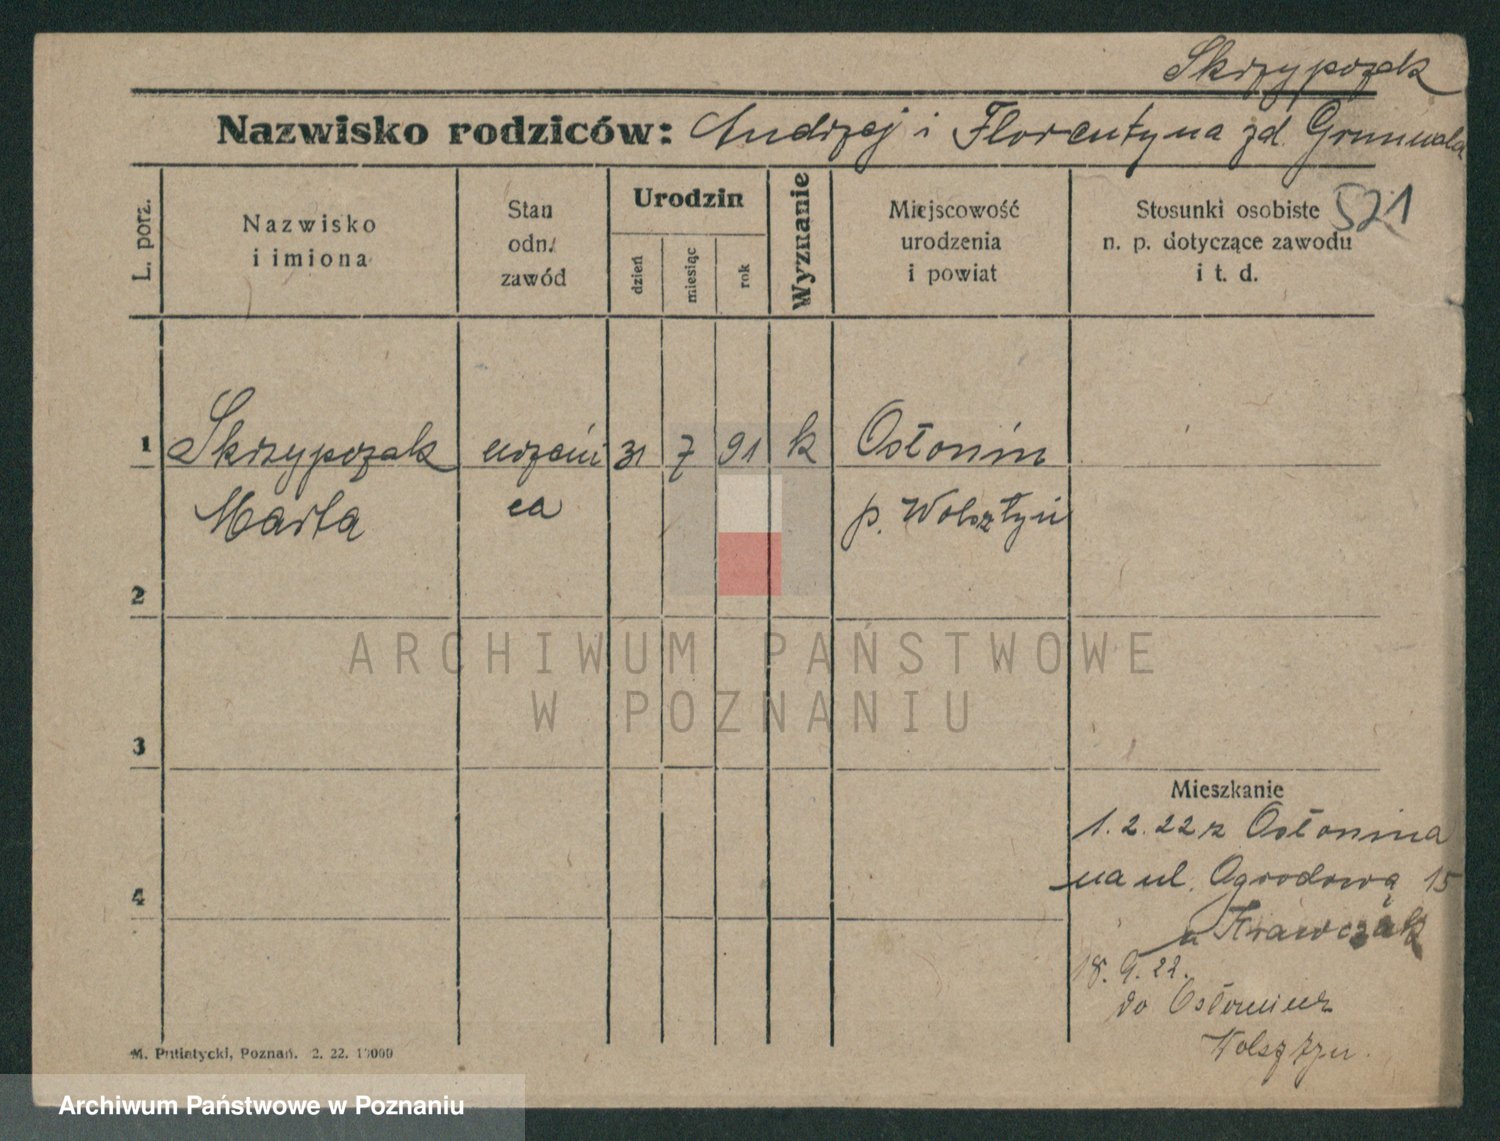 Skrzypczak
Nazwisko rodziców: Andrzej i Florentyna zd. Grunwald
L. porz.
Nazwisko
i imiona
Stan
odn.
zawód
Urodzin
dzień
miesiąc
rok
Wyznanie
Miejscowość
urodzenia
i powiat
Stosunki osobiste
n. p. dotyczące zawodu
i t. d.
521
1 Skrzypczak uczeni 31 7 91 k Osłonin
Marta ca p. Wolsztyn
2
3
4
Mieszkanie
1. 2. 22 z Osłonina
na ul. Ogrodową 15
u Krawczak
18. 9. 22.
do
Wolsztyn.
M. Putiatycki, Poznań. 2. 22. 10000
ARCHIWUM PAŃSTWOWE
W POZNANIU
Archiwum Państwowe w Poznaniu